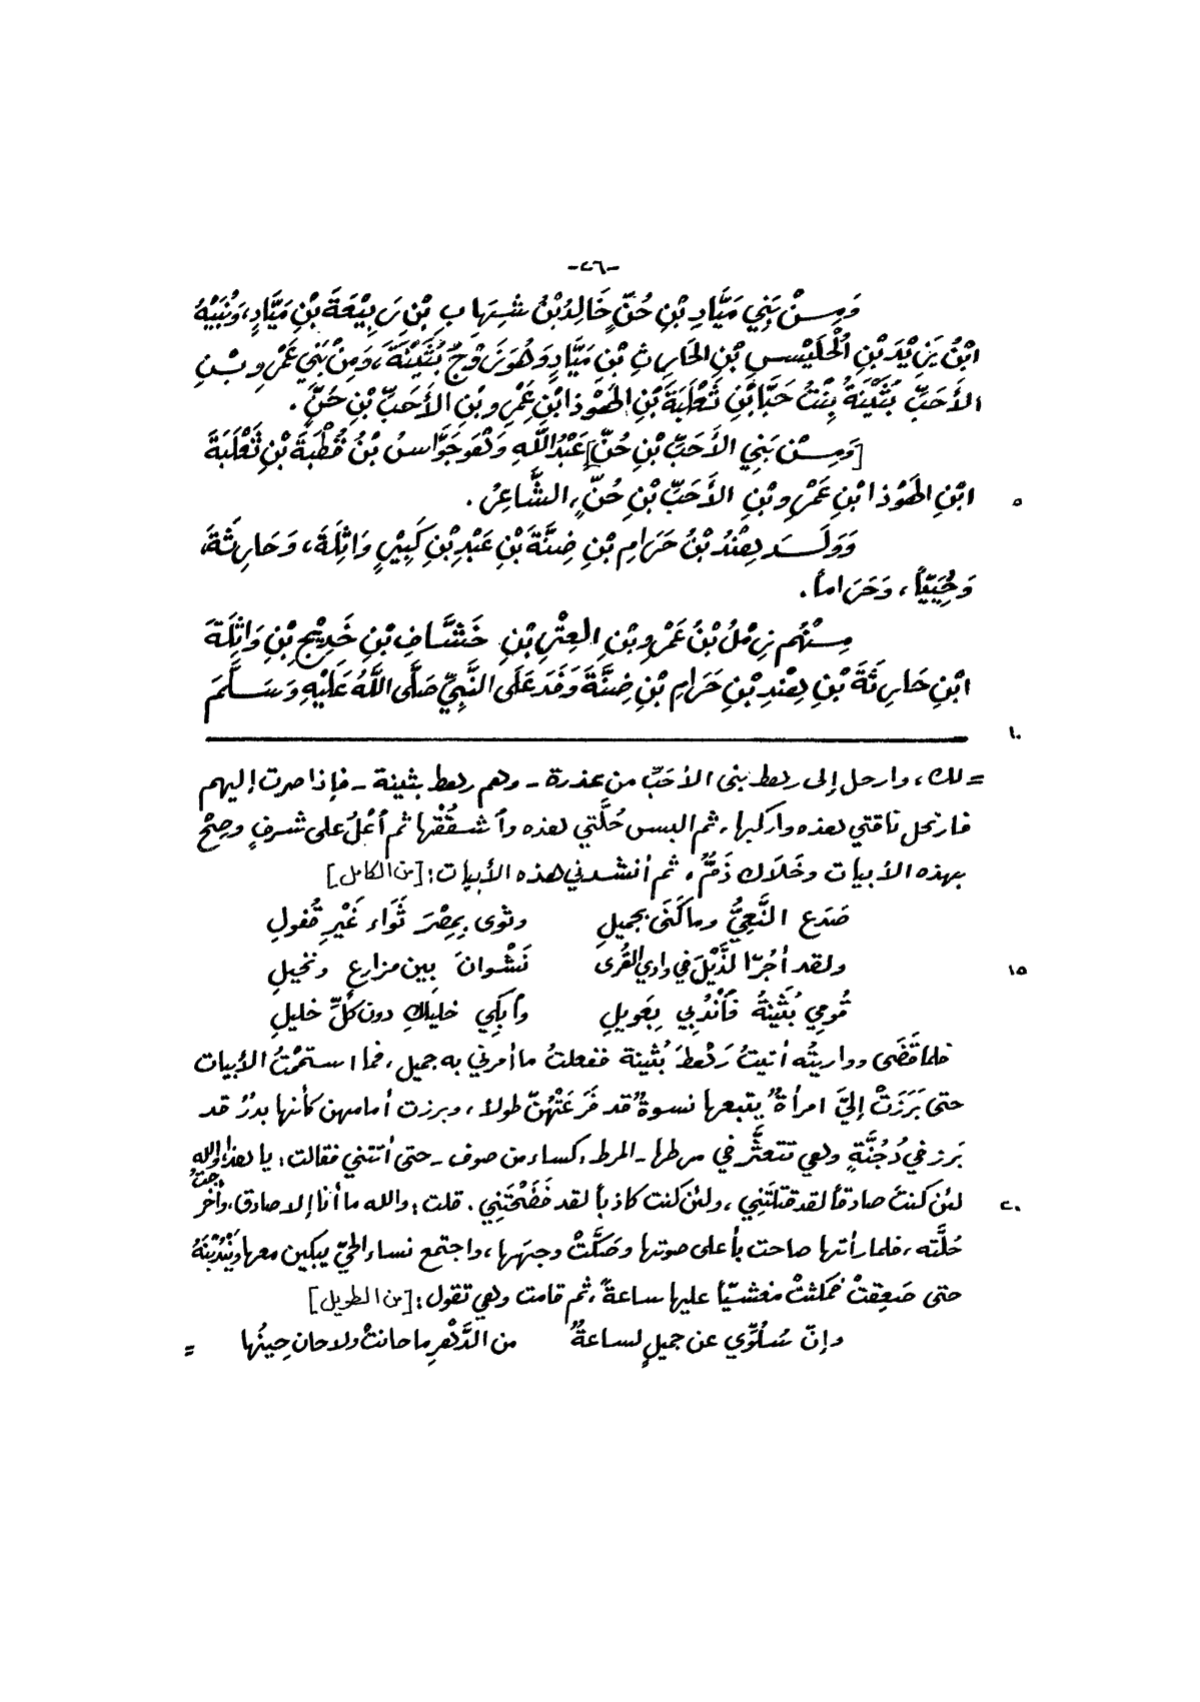 -٢٦-
وَمِنْ بَنِي مَيَّادِ بْنِ حُنٍّ خَالِدُ بْنُ شِهَابِ بْنِ رَبِيْعَةَ بْنِ مَيَّادٍ، وَنُبَيْهُ
ابْنُ يَزِيْدَ بْنِ الْحُلَيْسِ بْنِ الحَارِثِ بْنِ مَيَّادٍ وَهُوَ زَوْجُ بُثَيْنَةَ، وَمِنْ بَنِي عَمْرِو بْنِ
الأَحَبِّ بُثَيْنَةُ بِنْتُ حَبَّا بْنِ ثَعْلَبَةَ بْنِ الهَوْذِ ابْنِ عَمْرِو بْنِ الأَحَبِّ بْنِ حُنٍّ.
[وَمِنْ بَنِي الأَحَبِّ بْنِ حُنٍّ] عَبْدُ اللَّهِ وَهُوَ جَوَّاسُ بْنُ قُطْبَةَ بْنِ ثَعْلَبَةَ
ابْنِ الهَوْذِ ابْنِ عَمْرِو بْنِ الأَحَبِّ بْنِ حُنٍّ، الشَّاعِرُ. ٥
وَوَلَدَ هِنْدُ بْنُ حَرَامِ بْنِ ضِنَّةَ بْنِ عَبْدِ بْنِ كَبِيْرٍ وَاثِلَةَ، وَحَارِثَةَ،
وَحُيَيّاً، وَحَرَاماً.
مِنْهُم زِمْلُ بْنُ عَمْرِو بْنِ العِتْرِ بْنِ خَشَّافِ بْنِ خَدِيْجِ بْنِ وَاثِلَةَ
ابْنِ حَارِثَةَ بْنِ هِنْدِ بْنِ حَرَامِ بْنِ ضِنَّةَ وَفَدَ عَلَى النَّبِيِّ صَلَّى اللَّهُ عَلَيْهِ وَسَلَّمَ
١٠
= لك، وارحل إلى رهط بني الأحَبِّ من عذرة - وهم رهط بثينة - فإذا صرت إليهم
فارتحل ناقتي هذه واركبها، ثم البس حُلَّتي هذه وأشقُقْها ثم أعْلُ على شرفٍ وصِحْ
بهذه الأبيات وخَلَاك ذَمٌّ. ثم أنشدني هذه الأبيات: [من الكامل]
صَدَع النَّعِيُّ وما كَنَى بجميلِ وثوى بِمِصْرَ ثَوَاءَ غَيْرِ قُفولِ
ولقد أجُرّ الذَّيْلَ في وادي القُرى نَشْوانَ بين مزارعٍ ونخيلِ ١٥
قُومِي بُثَيْنةُ فَأنْدُبِي بِعَويلِ وأبكِي خليلكِ دون كلِّ خليلِ
فلما قَضَى وواريتُه أتيتُ رَهْطَ بُثينة ففعلتُ ما أمرني به جميل، فما استتممْتُ الأبيات
حتى بَرَزَتْ إليَّ امرأةٌ يتبعها نسوةٌ قد فَرَعَتْهُنّ طولاً، وبرزت أمامهن كأنها بدرٌ قد
بَرز في دُجُنَّةٍ وهي تتعثَّر في مرطها - المرط: كساء من صوف - حتى أتتني فقالت: يا هذا والله
لئن كنتَ صادقاً لقد قتلتَنِي، ولئن كنت كاذباً لقد فَضَحْتَنِي. قلت: والله ما أنا إلا صادق، وأخرجتُ ٢٠
حُلَّته، فلما رأتها صاحت بأعلى صوتها وصَكَّتْ وجهها، واجتمع نساء الحيّ يبكين معها ويَنْدُبْنَهُ
حتى صَعِقتْ فمكثتْ مغشيّاً عليها ساعةً، ثم قامت وهي تقول: [من الطويل]
وإنّ سُلُوّي عن جميلٍ لساعةٌ من الدَّهْرِ ما حانتْ ولا حان حِينُها =